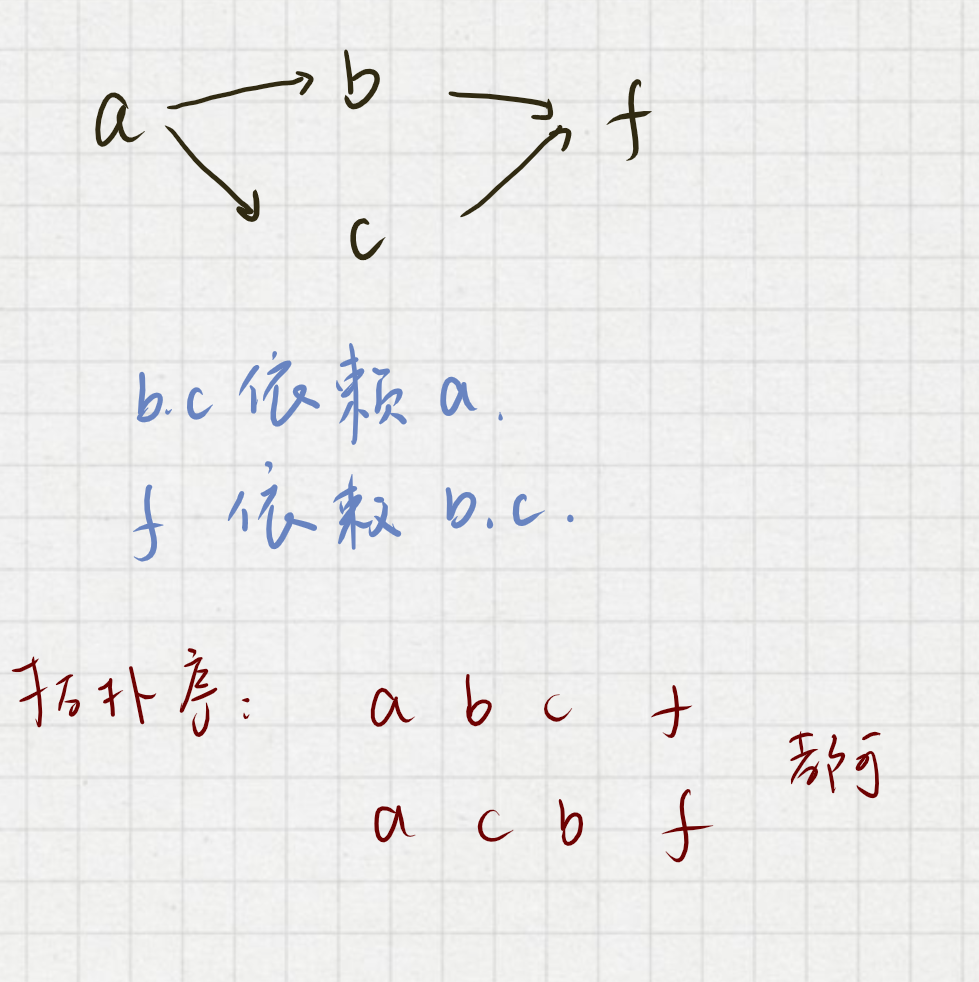 a b f
c
b.c 依赖 a.
f 依赖 b.c.
拓扑序: a b c f
都可
a c b f